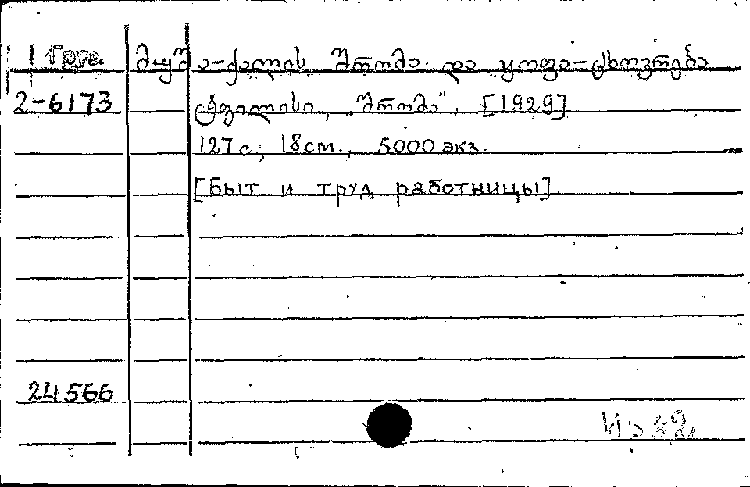 მუშა-ქალის შრომა და ყოფა-ცხოვრება
2-6173
ტფილისი, „შრომა", [1929]
127 с.; 18 см., 5000 экз.
[Быт и труд работницы]
24566